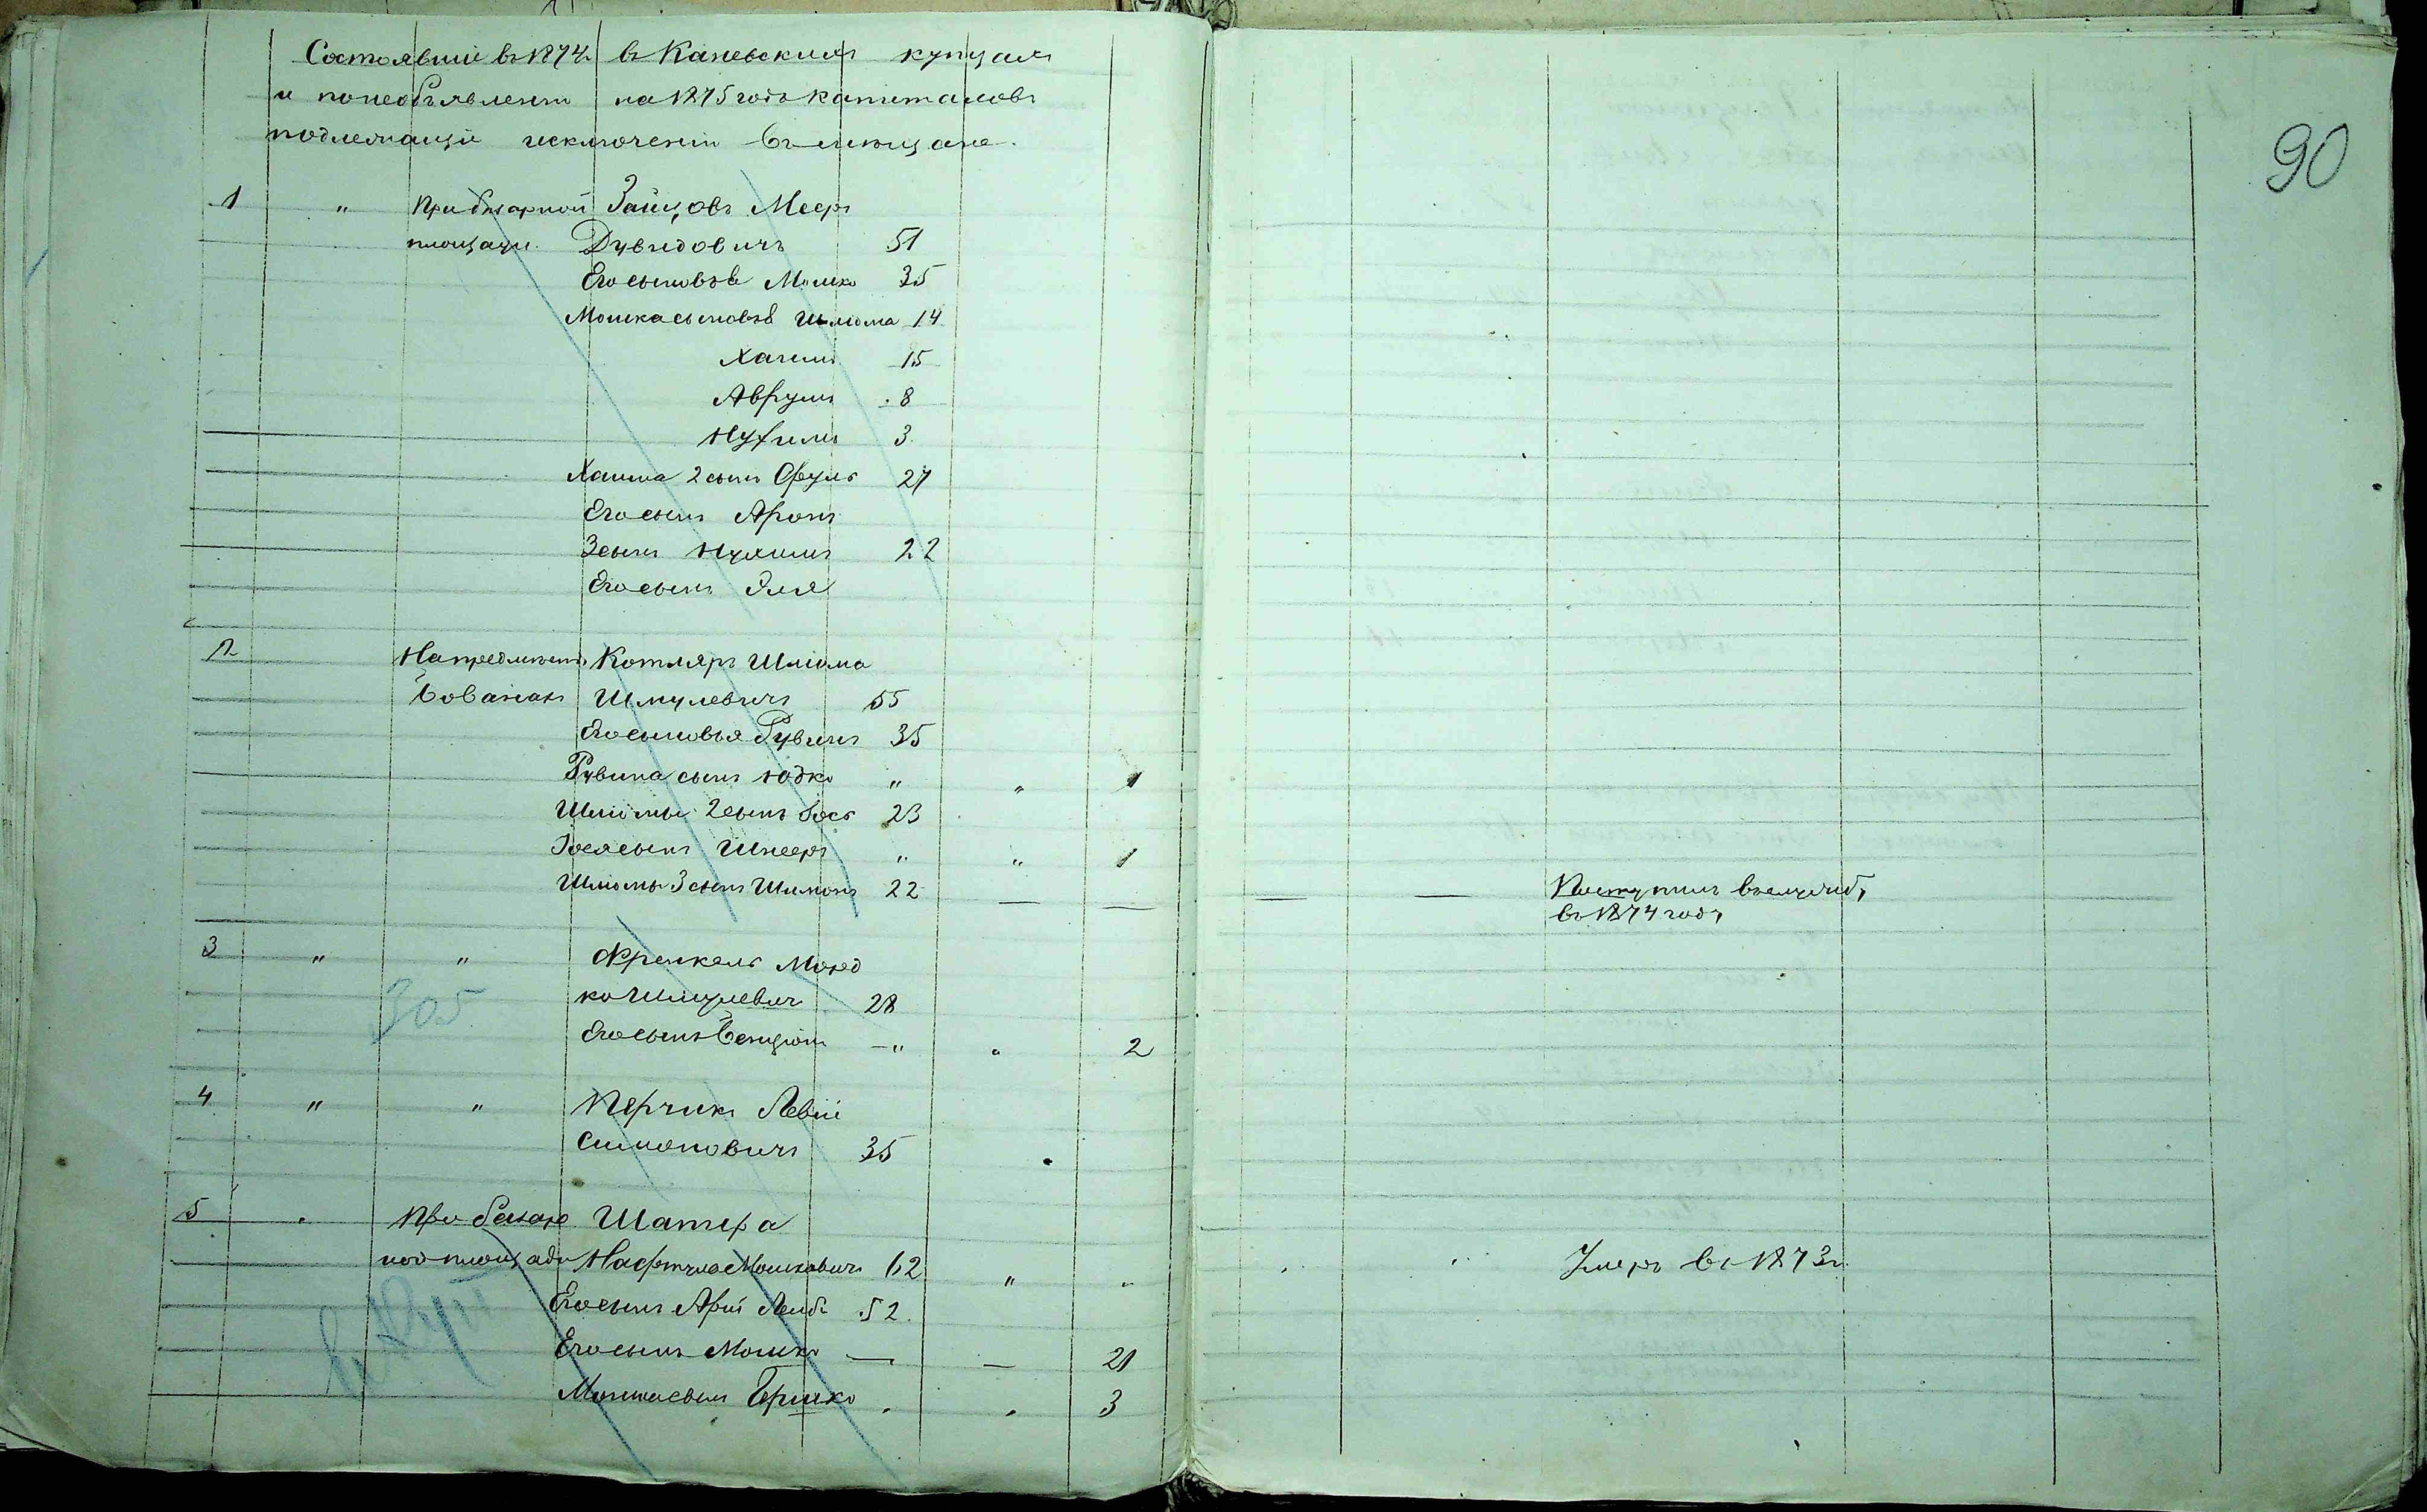 Состоявшіе въ 1874 г. въ Каневскихъ купцахъ
и по необъявленію на 1875 годъ капиталовъ
подлежащіе исключенію въ мѣщане.
1 " При базарной Зайцовъ Мееръ
площади. Дувидовичъ 51
Его сыновья Мошко 35
Мошка сыновья Шлиома 14
Хаимъ 15
Аврумъ 8
Нухимъ 3
Хаима 2 сынъ Сруль 27
Его сынъ Аронъ
3 сынъ Нухимъ 22
Его сынъ Эля
2 На предмѣстіи Котляръ Шлиома
Шмулевичъ 55
Его сыновья Рувинъ 35
Рувина сынъ Юдко " " 1
Шлиомы 2 сынъ Іось 23
Іося сынъ Шнееръ " " 1
Шлиомы 3 сынъ Шимонъ 22 — — — — Поступилъ въ службу
въ 1874 году
3 " " Френкель Морд
ко Шмулевичъ 28
305
Его сынъ Бенціонъ — " " 2
4 " " Перчикъ Левій
Симоновичъ 35
5 " При базар Шатира
ной площади Нафтула Мошковичъ 62 " " " " Умеръ въ 1873 г.
Его сынъ Арій Лейбъ 52
Его сынъ Мошко — — 21
Мошка сынъ Бершко " " 3
90